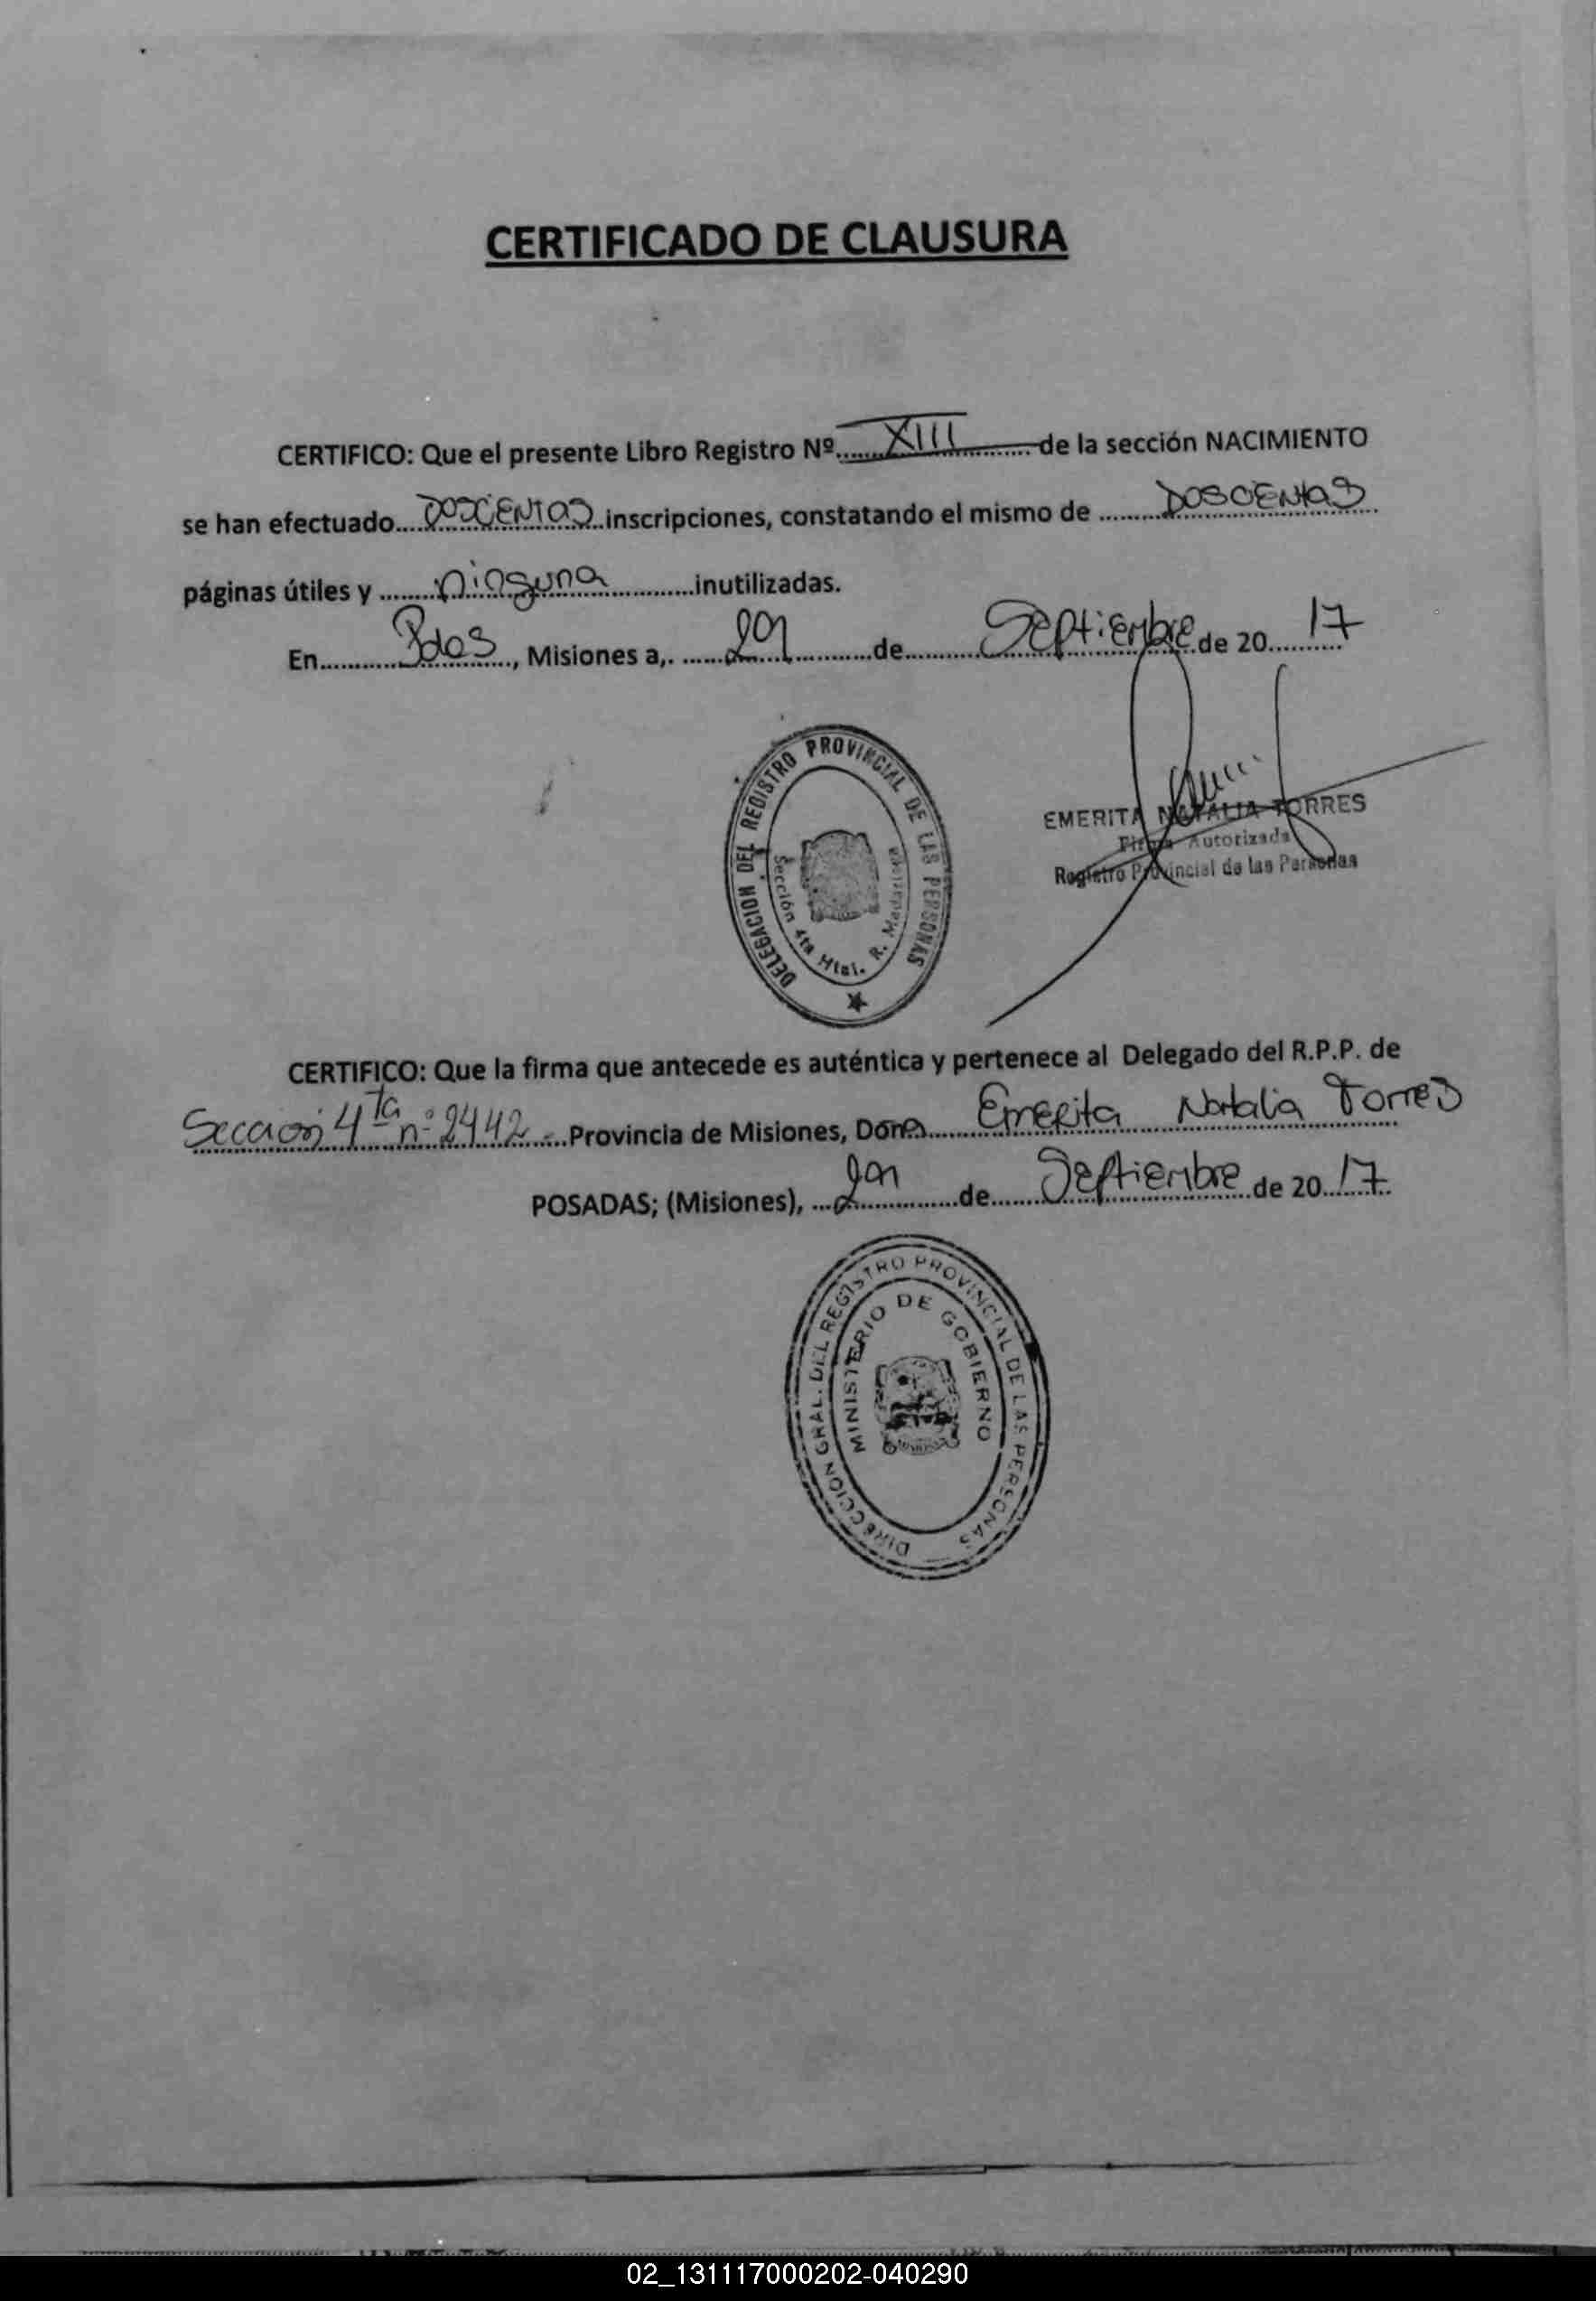 CERTIFICADO DE CLAUSURA
CERTIFICO: Que el presente Libro Registro Nº......XIII......de la sección NACIMIENTO
se han efectuado....DOSCIENTAS..inscripciones, constatando el mismo de ..........DOSCIENTAS
páginas útiles y ........ninguna............inutilizadas.
En...........Pdas..., Misiones a,. ......29............de...........Septiembre.de 20....17
DELEGACION DEL REGISTRO PROVINCIAL DE LAS PERSONAS
Sección 4ta Htal. R. Madariaga
EMERITA NATALIA TORRES
Firma Autorizada
Registro Provincial de las Personas
CERTIFICO: Que la firma que antecede es auténtica y pertenece al Delegado del R.P.P. de
Sección 4ta nº 2442 -....Provincia de Misiones, Doña......Emerita Natalia Torres
POSADAS; (Misiones), ...29..............de.......Septiembre.de 20..17..
DIRECCION GRAL. DEL REGISTRO PROVINCIAL DE LAS PERSONAS
MINISTERIO DE GOBIERNO
02_131117000202-040290